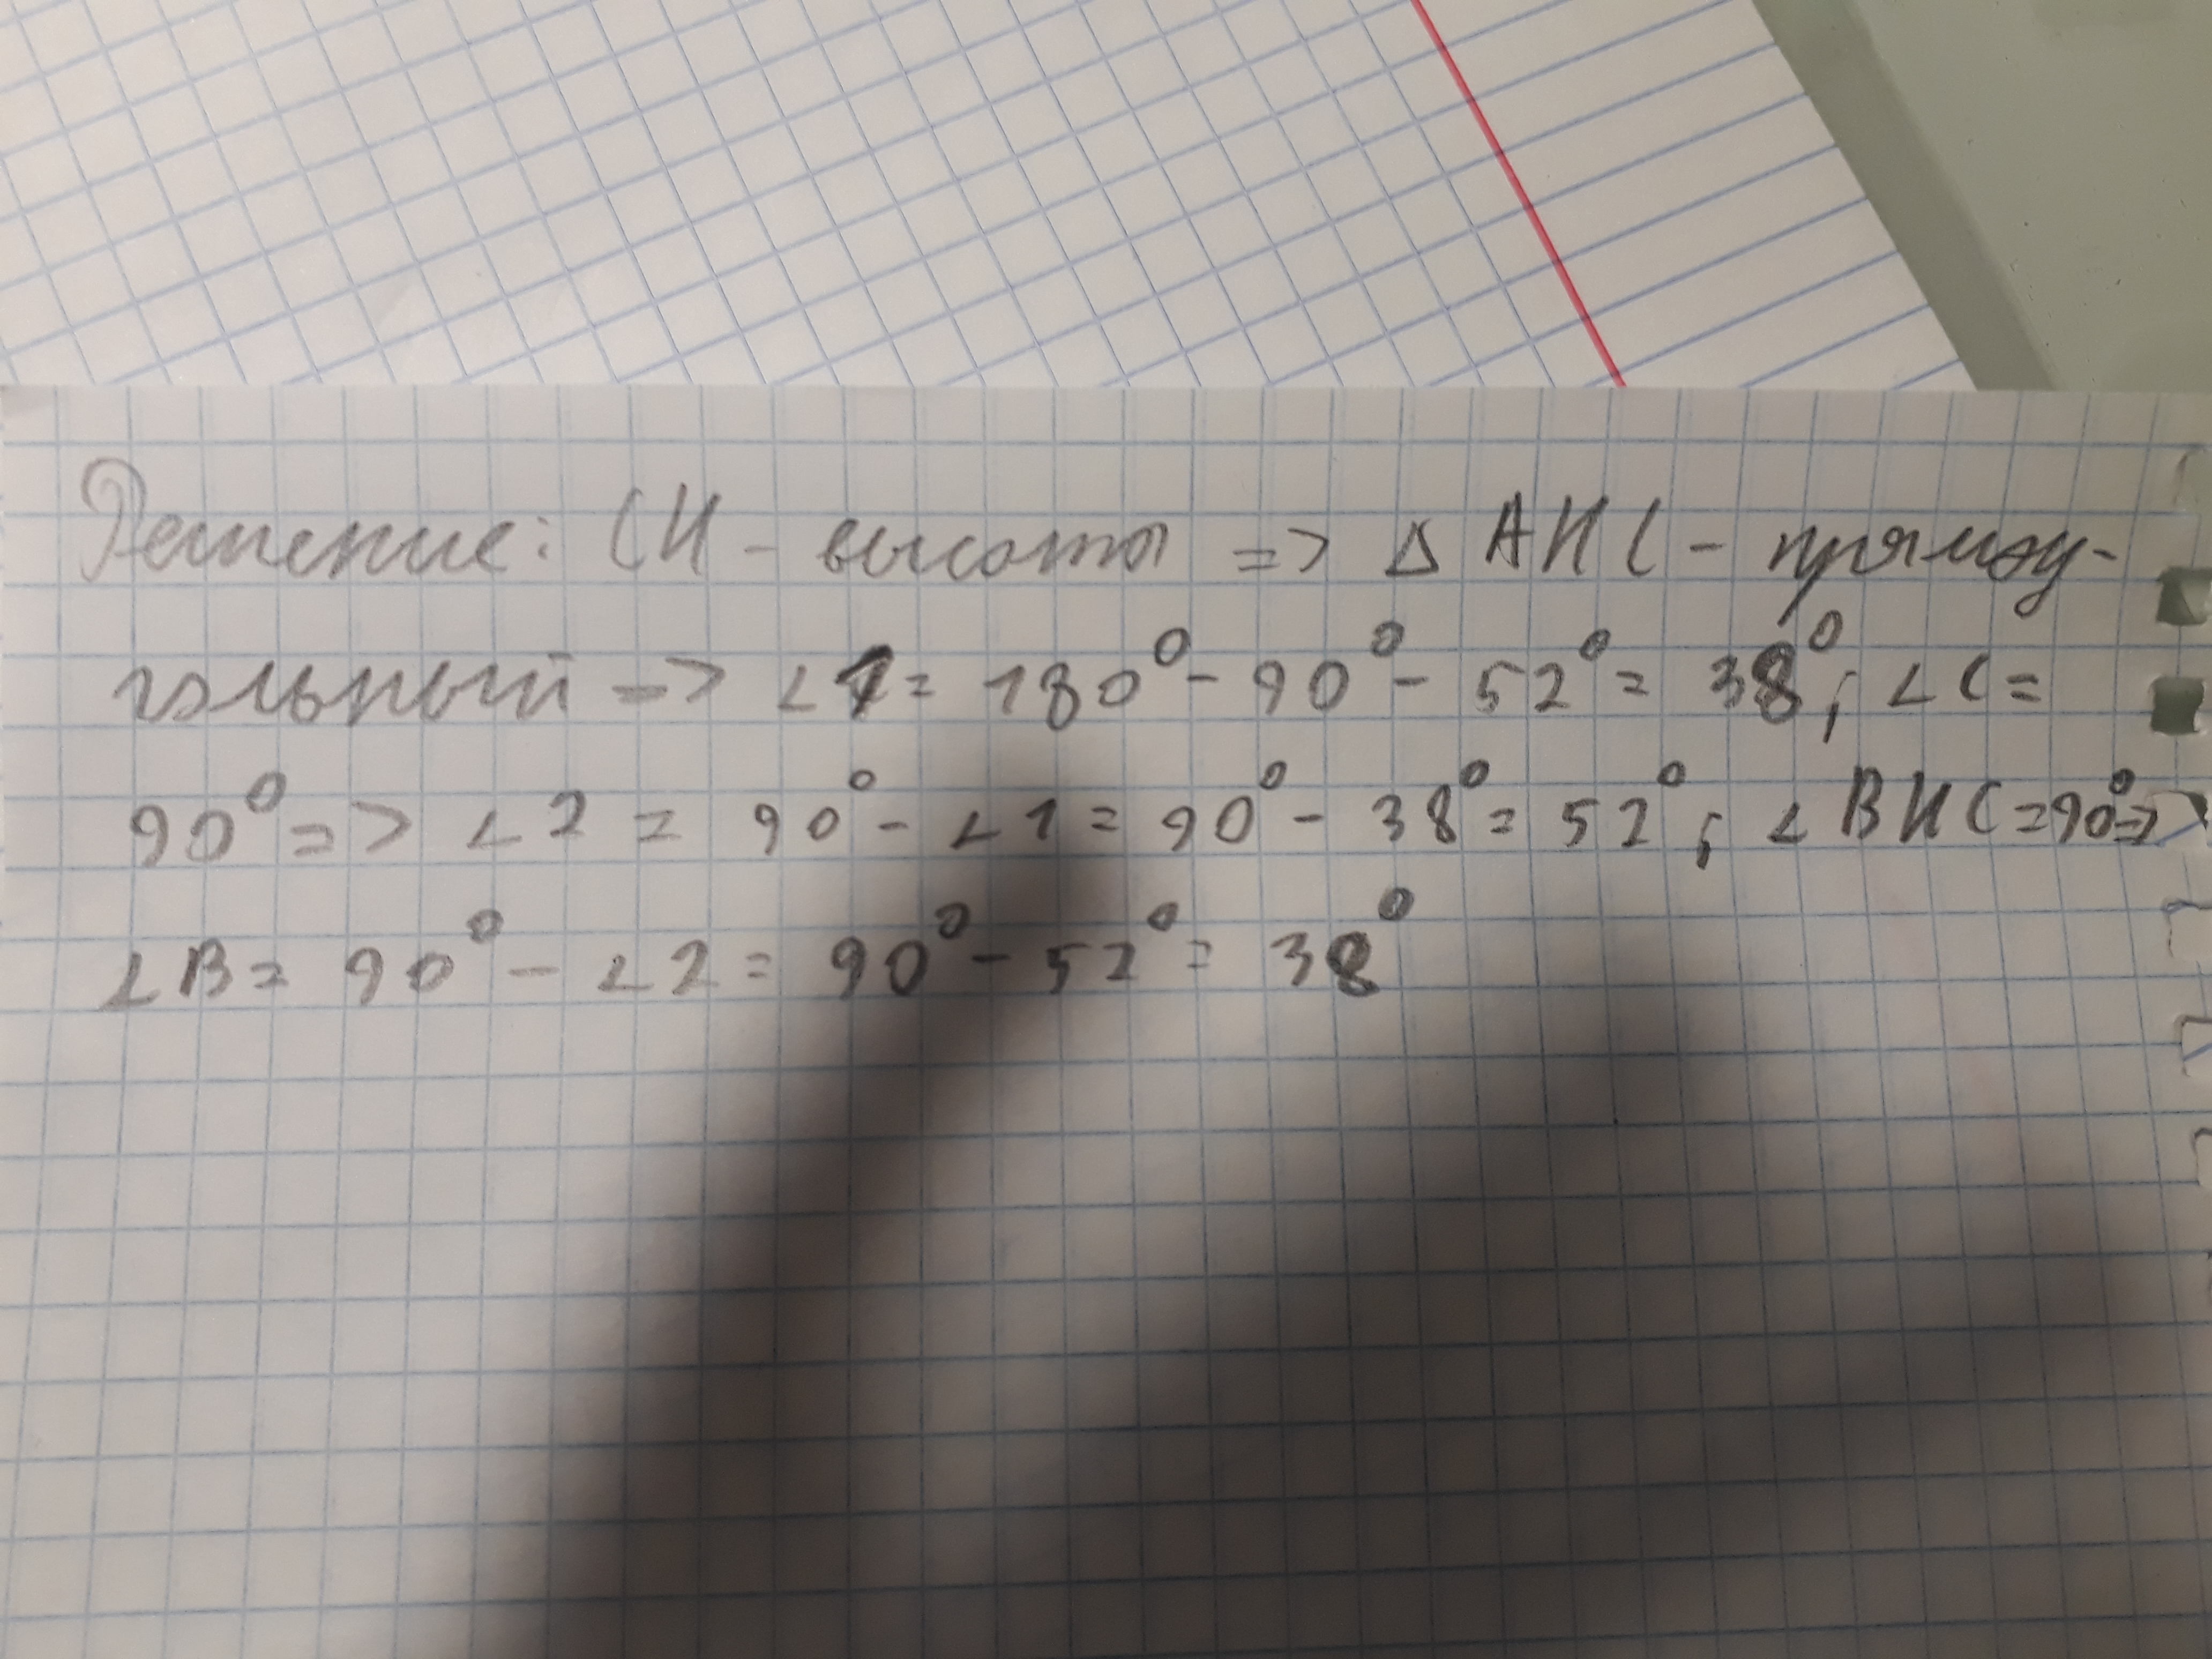 Решение: CH - высота => Δ AHC - прямоу-
гольный => ∠1 = 180° - 90° - 52° = 38°; ∠C =
90° => ∠2 = 90° - ∠1 = 90° - 38° = 52°; ∠BHC = 90° =>
∠B = 90° - ∠2 = 90° - 52° = 38°